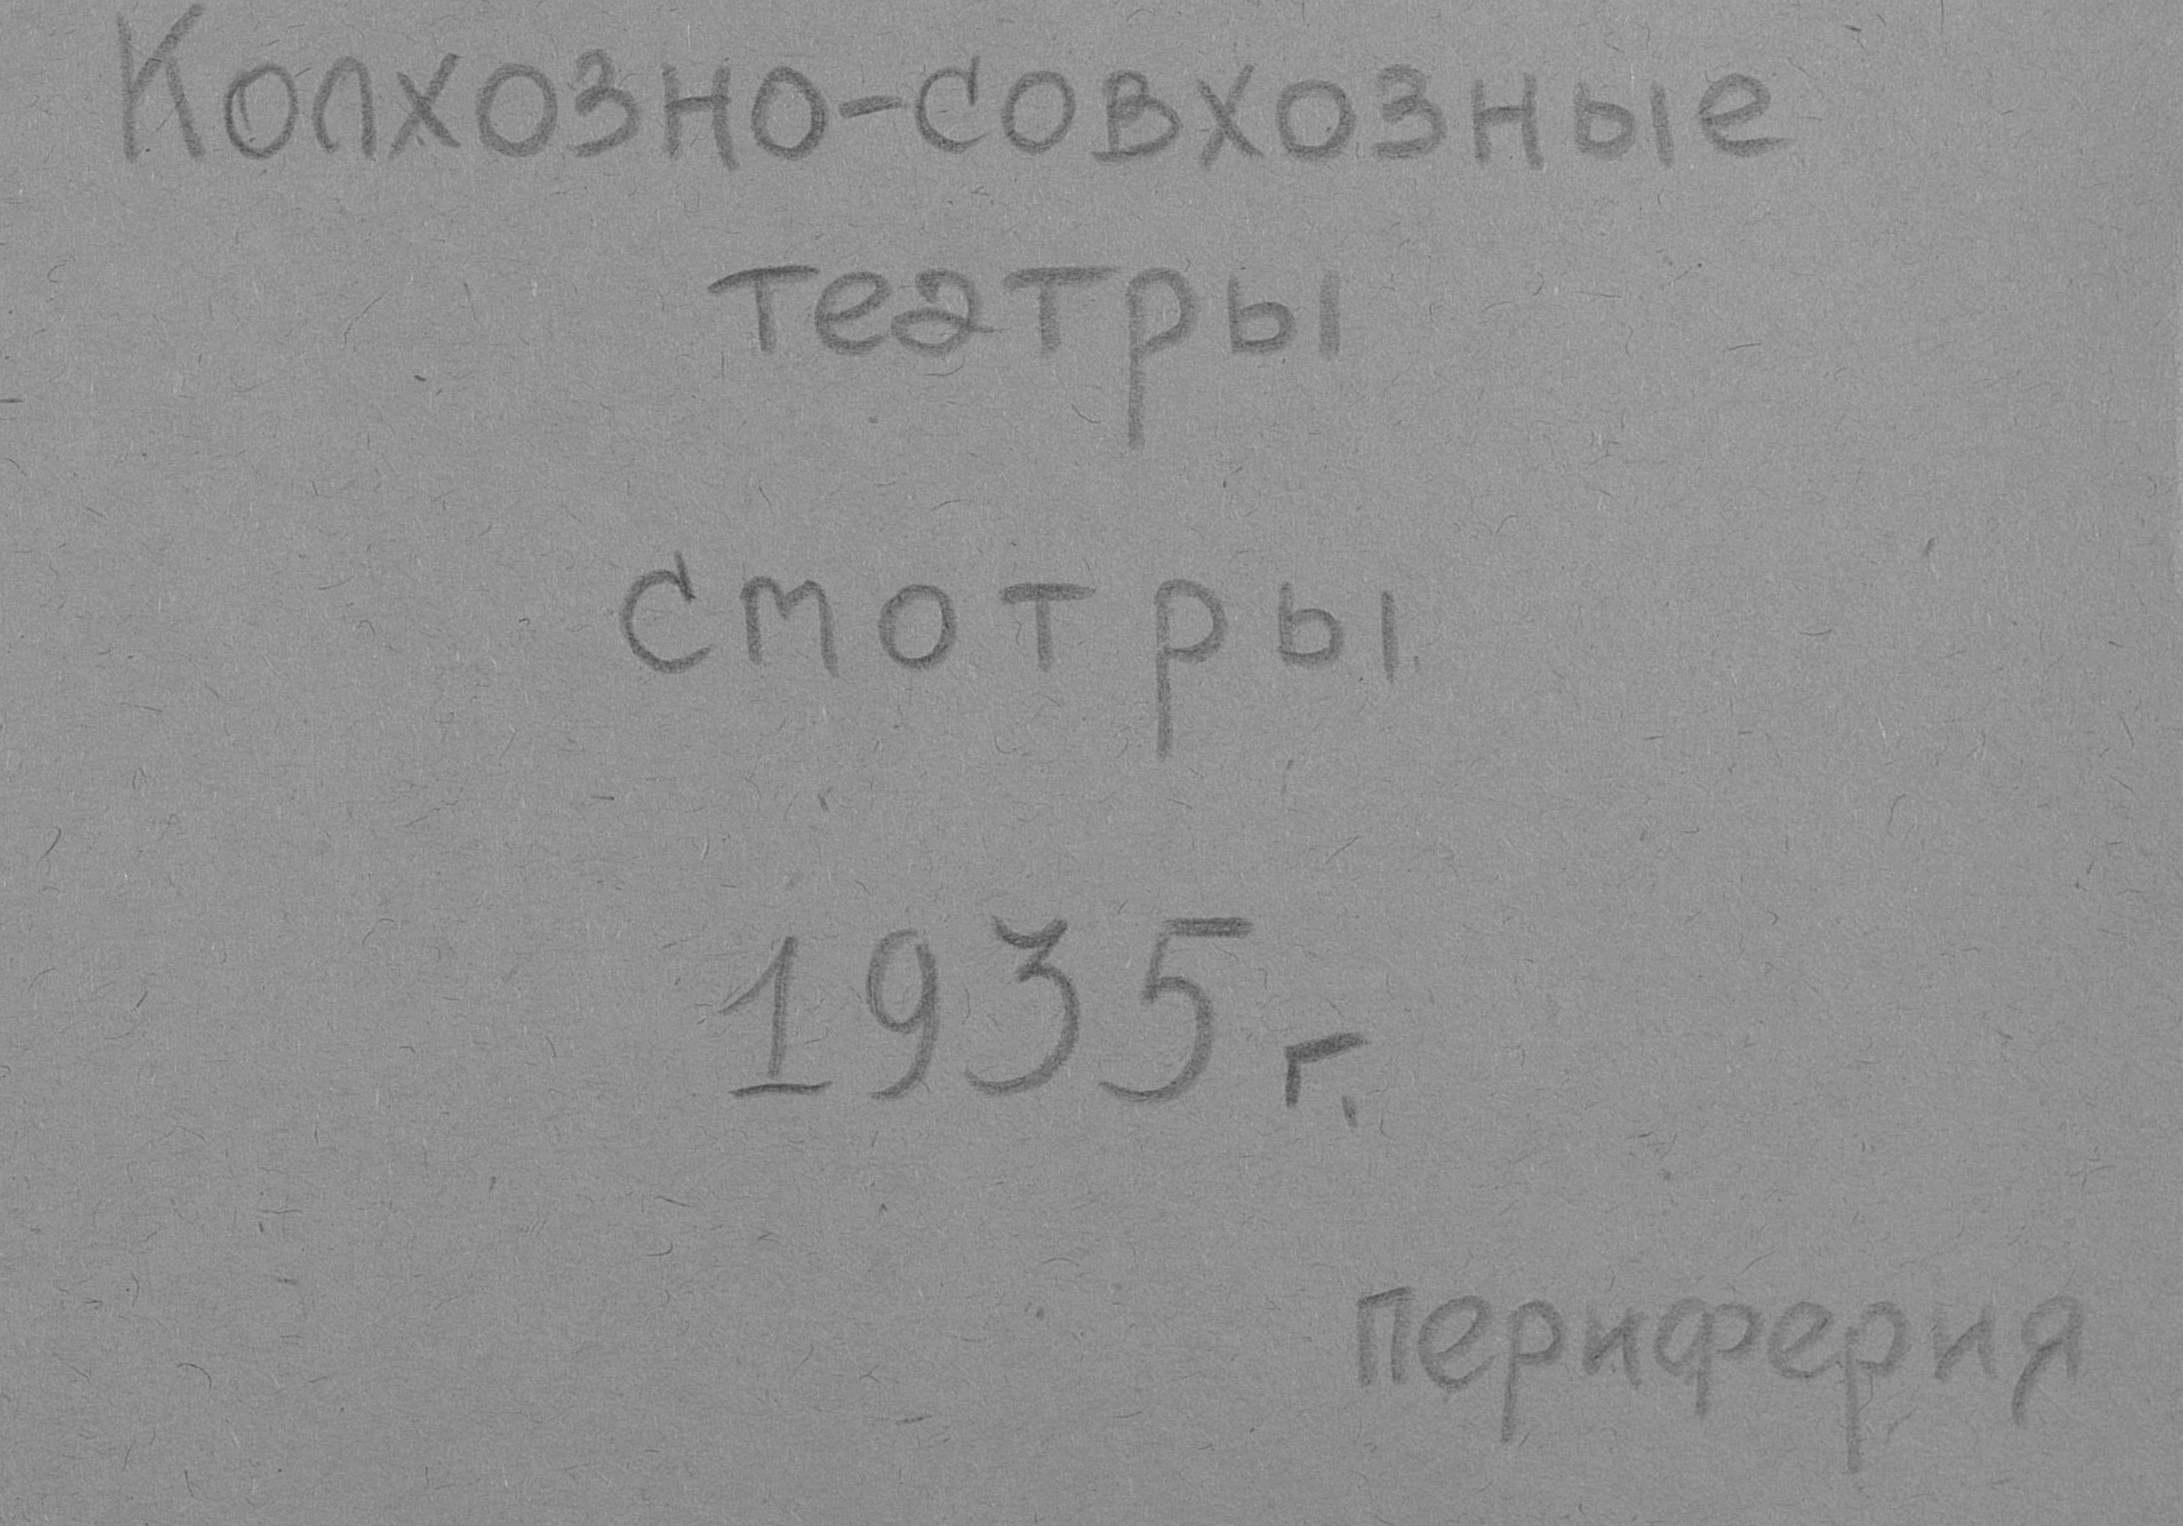 Колхозно-совхозные
театры
смотры
1935 г.
периферия